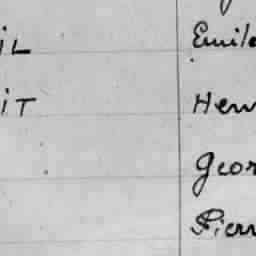 iL Emile
iT Hen
Geor
Pierr